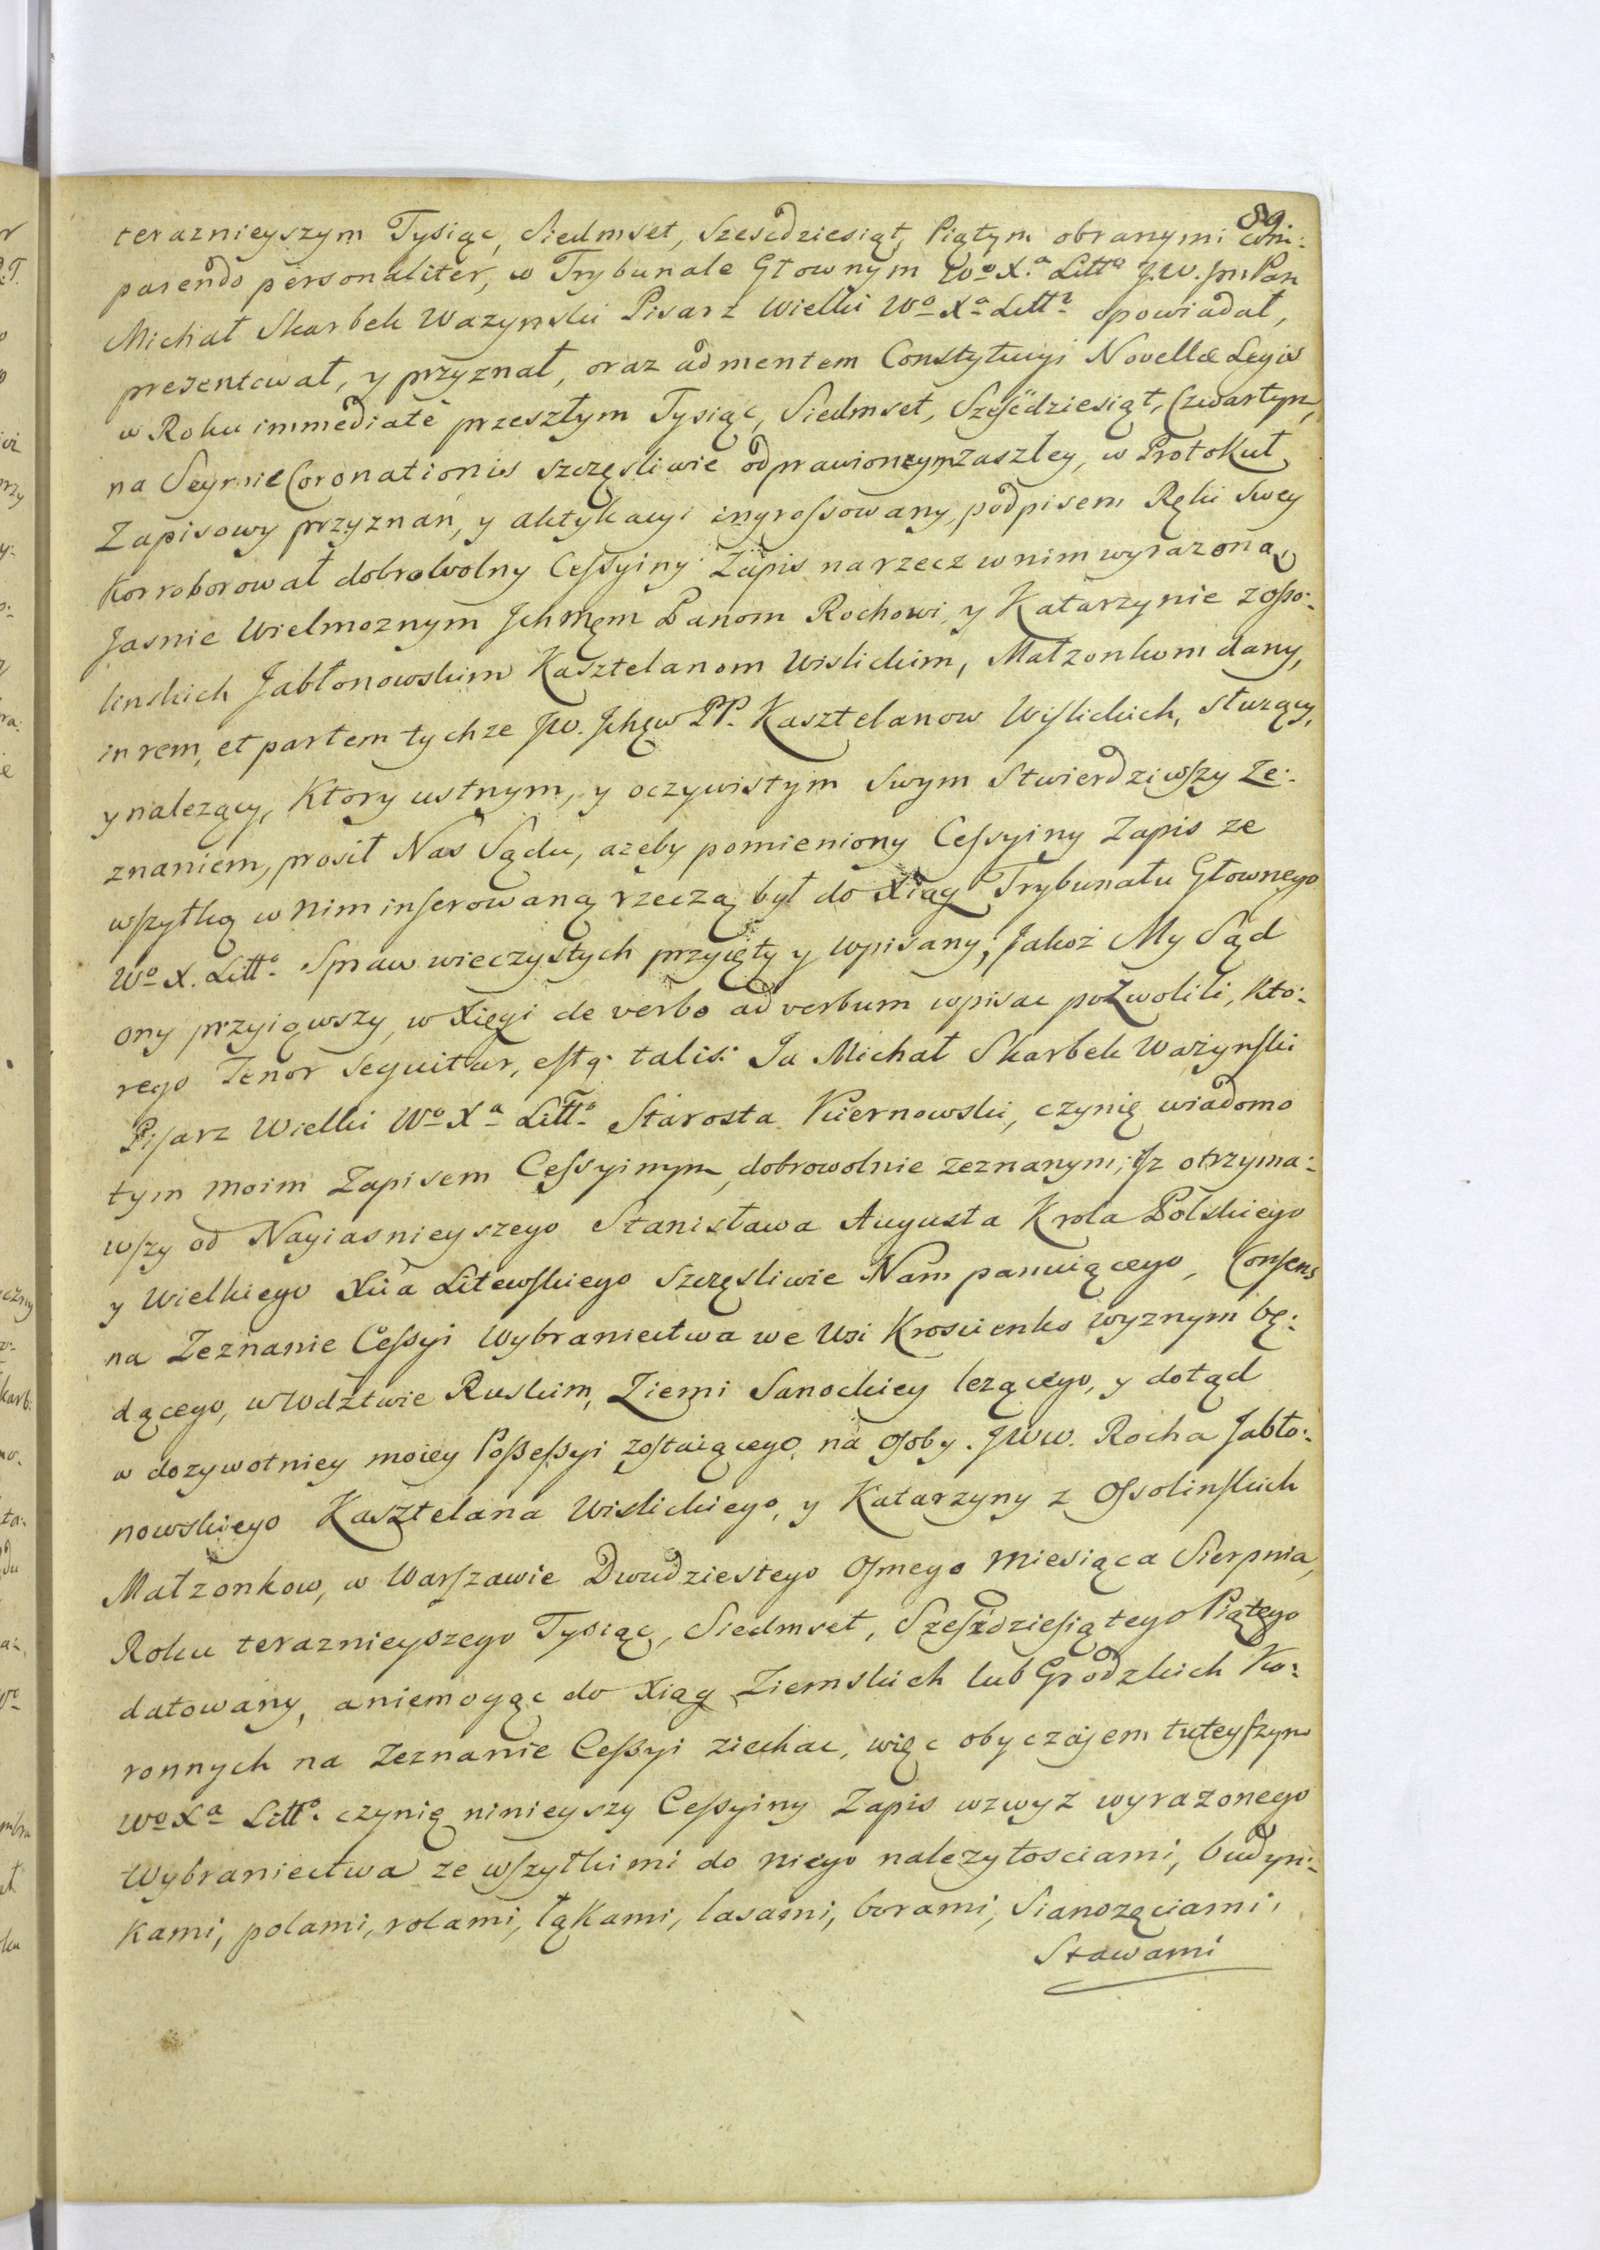 89.
teraznieyszym Tysiąc, Siedmset, Szescdziesiąt, Piątym obranymi com:
parendo personaliter, w Trybunale Głownym Wo Xa Litto JW. Jm Pan
Michał Skarbek Wazynski Pisarz Wielki Wo Xa Litto opowiadał,
prezentował, y przyznał, oraz ad mentem Constytucyi Novellæ Legis
w Roku immediatè przeszłym Tysiąc, Siedmset, Sześćdziesiąt, Czwartym,
na Seymie Coronationis szczęsliwie odprawionym zaszley, w Protokuł
Zapisowy przyznań, y aktykacyi ingrossowany, podpisem Ręki Swey
Korroborował dobrolwolny Cessyiny Zapis na rzecz w nim wyrazoną,
Jasnie Wielmoznym Jchmęm Panom Rochowi, y Katarzynie z Osso:
linskich Jabłonowskim Kasztelanom Wislickim, Małzonkom dany,
in rem, et partem tychze JW. Jchęw PP. Kasztelanow Wislickich, słuzący,
y nalezący, Ktory ustnym, y oczywistym Swym Stwierdziwszy Ze:
znaniem, prosił Nas Sądu, azeby pomieniony Cessyiny Zapis ze
wszytką w nim inserowaną rzeczą był do Xiąg Trybunału Głownego
Wo X. Litto Spraw wieczystych przyięty y wpisany; Jakoż My Sąd
ony przyiąwszy, w Xięgi de verbo ad verbum wpisac pozwolili, Kto:
rego Tenor Sequitur, estq. talis: Ja Michał Skarbek Ważynski
Pisarz Wielki Wo Xa Litto Starosta Kiernowski, czynię wiadomo
tym moim Zapisem Cessyinym, dobrowolnie zeznanym; Jz otrzyma:
wszy od Nayiasnieyszego Stanisława Augusta Krola Polskiego
y Wielkiego Xiia Litewskiego szczęsliwie Nam panuiącego, Consens
na Zeznanie Cessyi Wybraniectwa we Wsi Kroscienko wyznym bę:
dącego, w Wodztwie Ruskim, Ziemi Sanockiey lezącego, y dotąd
w dozywotniey moiey Possessyi zostaiącego na Osoby JWW. Rocha Jabło:
nowskiego Kasztelana Wislickiego, y Katarzyny z Ossolinskich
Małzonkow, w Warszawie Dwudziestego Osmego Miesiąca Sierpnia,
Roku teraznieyszego Tysiąc, Siedmset, Sześździesiątego Piątego
datowany, a niemogąc do Xiąg Ziemskich lub Grodzkich Ko:
ronnych na Zeznanie Cessyi ziechac, więc obyczajem tuteyszym
Wo Xa Litto czynię ninieyszy Cessyiny Zapis wzwyz wyrazonego
Wybraniectwa ze wszytkimi do niego nalezytosciami, budyn:
kami, polami, rolami, łąkami, lasami, borami, Sianozęciami,
Stawami